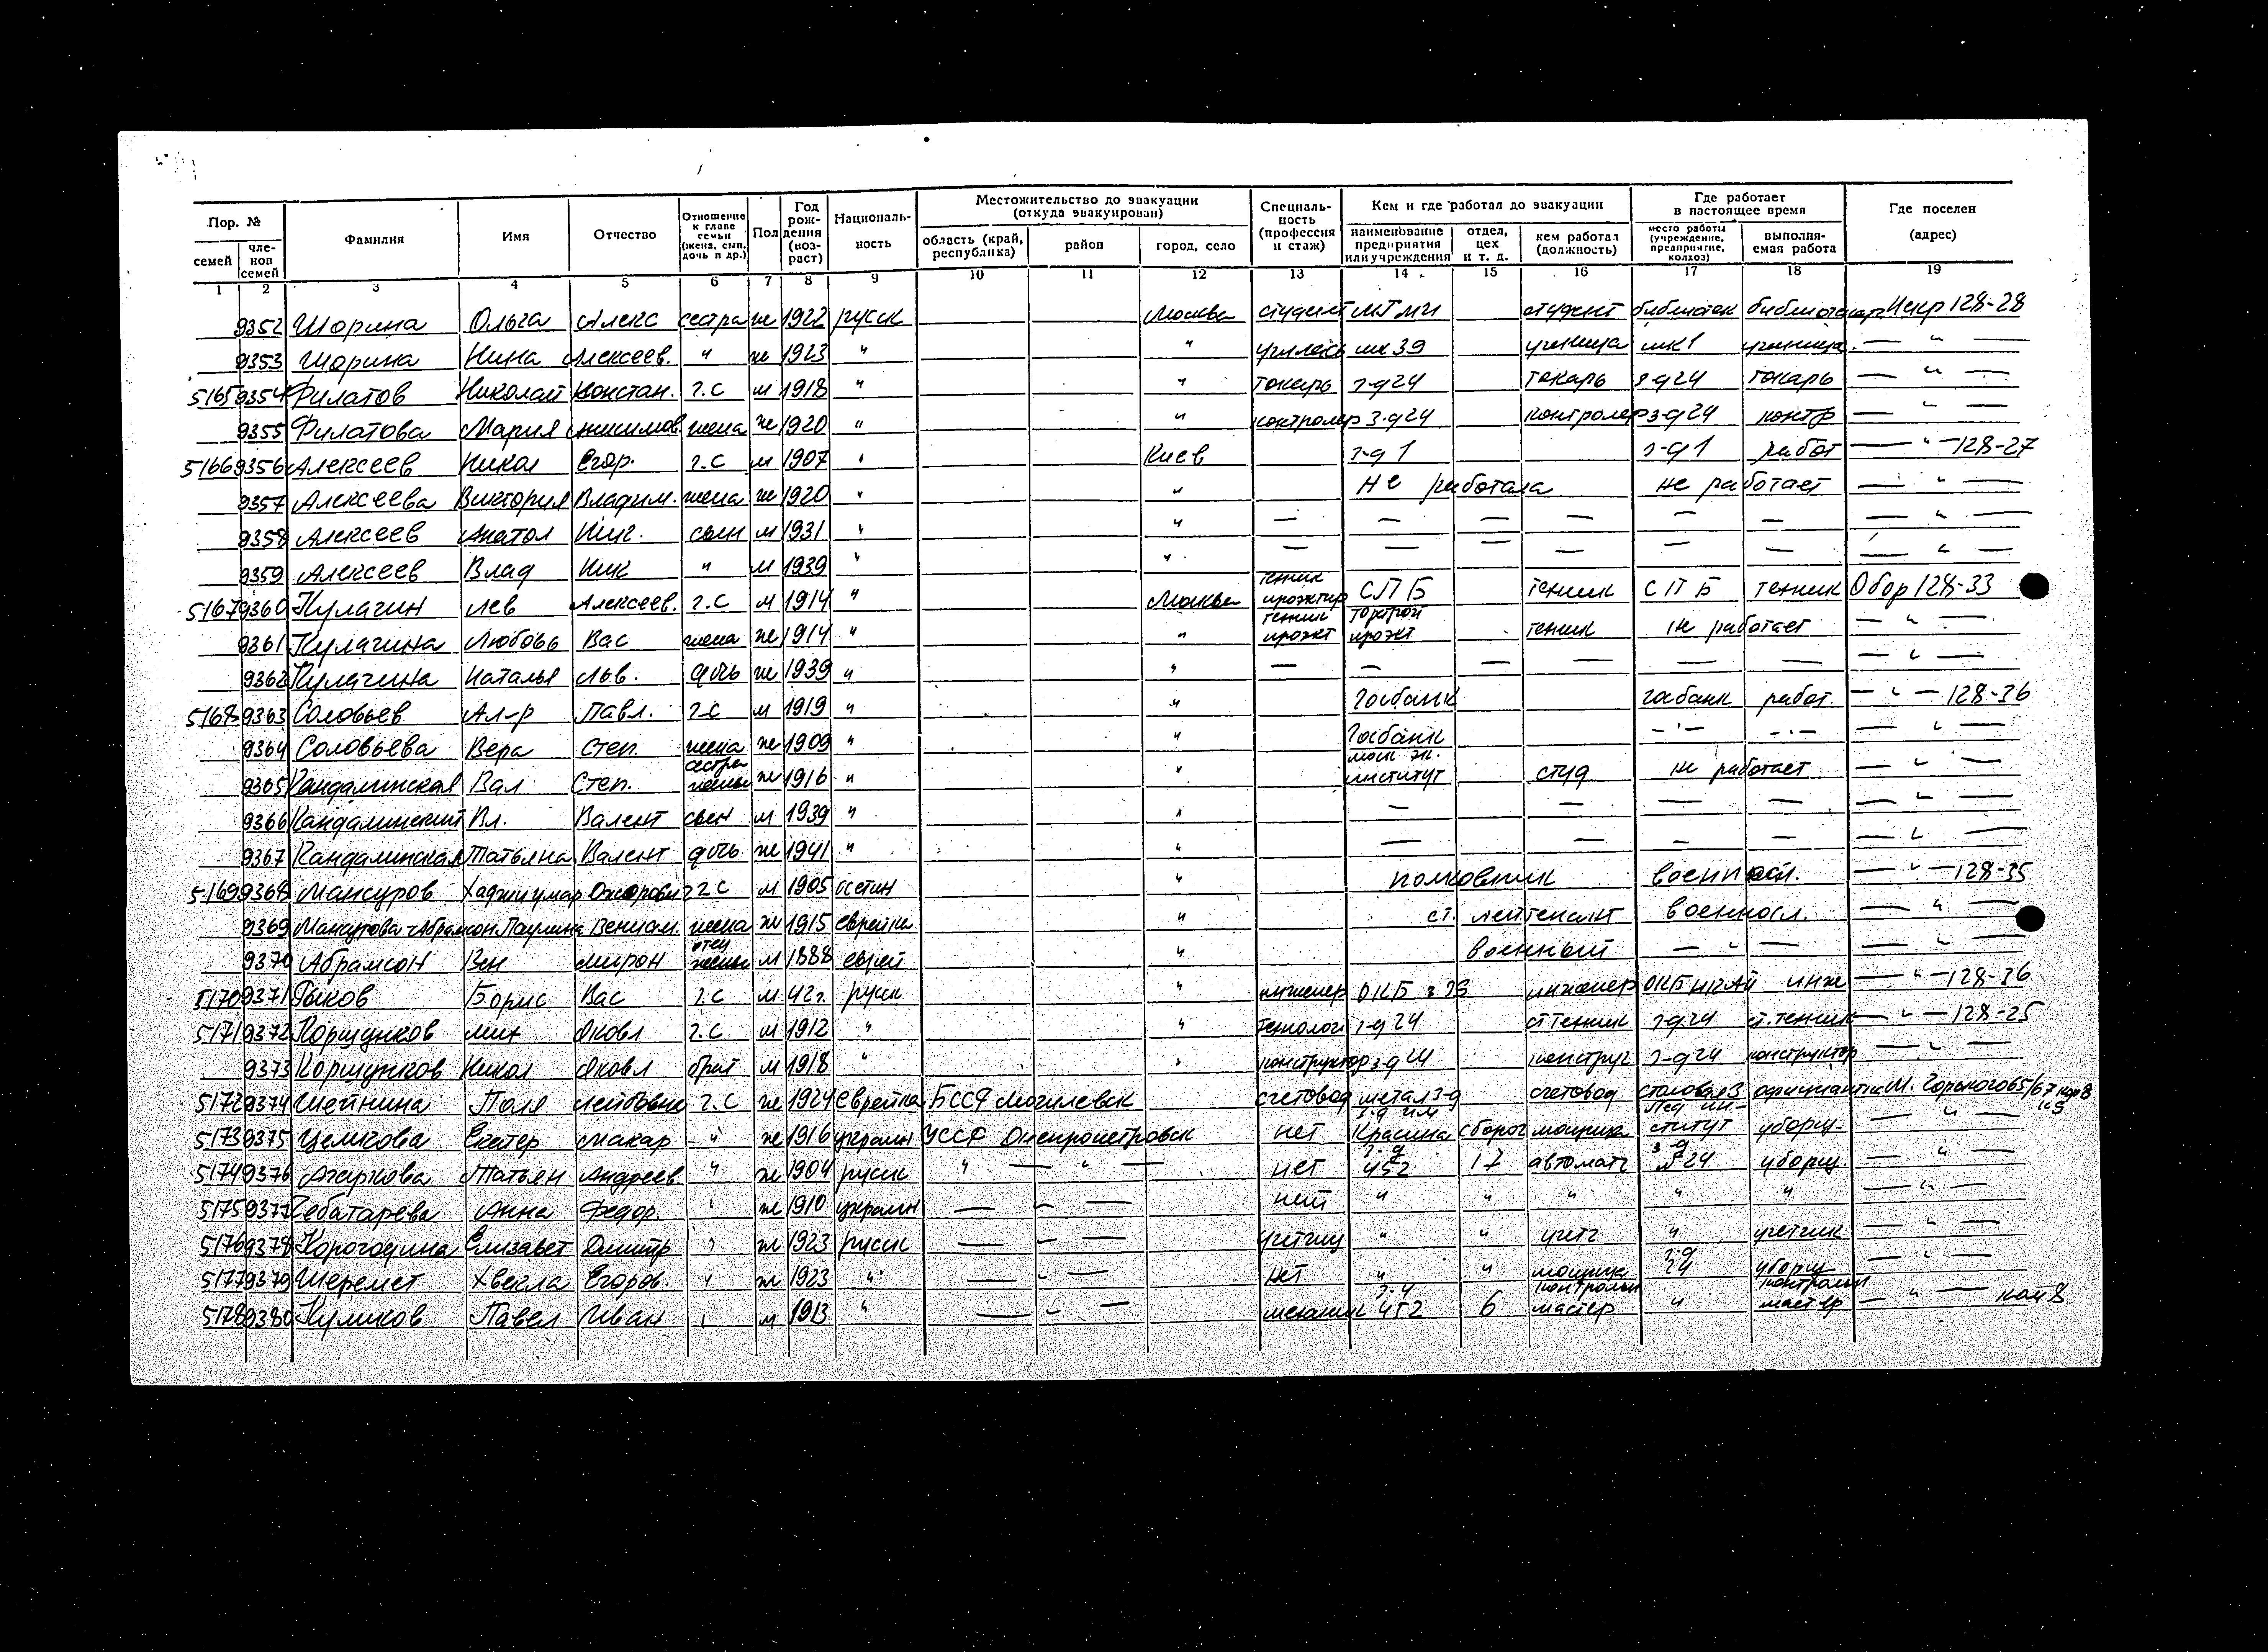 Пор. № Фамилия Имя Отчество Отношение к главе семьи (жена, сын, дочь и др.) Пол Год рождения (возраст) Национальность Местожительство до эвакуации (откуда эвакуирован) Специальность (профессия и стаж) Кем и где работал до эвакуации Где работает в настоящее время Где поселен (адрес)
семей членов семей область (край, республика) район город, село наименование предприятия или учреждения отдел, цех и т. д. кем работал (должность) место работы (учреждение, предприятие, колхоз) выполняемая работа
1 2 3 4 5 6 7 8 9 10 11 12 13 14 15 16 17 18 19
9352 Шорина Ольга Алекс сестра ж 1922 русск Москва студент студент библиотек 128-28
9353 Шорина Нина Алексеев. " ж 1923 " " училась шк 39 ученица шк 1 ученица — " —
5165 9354 Филатов Николай Констан. г.с м 1918 " " токарь з-д 24 токарь з-д 24 токарь — " —
9355 Филатова Мария Анисимов. жена ж 1920 " " контролер з-д 24 контролер з-д 24 контр — " —
5166 9356 Алексеев Никол Егор. г.с м 1907 " Киев з-д 1 з-д 1 работ — " — 128-27
9357 Алексеева Виктория Владим. жена ж 1920 " " не работала не работает — " —
9358 Алексеев Анатол Ник. сын м 1931 " " — — — — — — — " —
9359 Алексеев Влад Ник " м 1939 " " — — — — — — — " —
5167 9360 Кулагин Лев Алексеев. г.с м 1914 " Москва техник проэктир СПБ техник СПБ техник Обор 128-33
9361 Кулагина Любовь Вас жена ж 1914 " " техник проэкт проэкт техник не работает — " —
9362 Кулагина Наталья Льв. дочь ж 1939 " " — — — — — — — " —
5168 9363 Соловьев Ал-р Павл. г.с м 1919 " " Госбанк госбанк работ. — " — 128-36
9364 Соловьева Вера Степ. жена ж 1909 " " Госбанк — " — — " — — " —
9365 Кандалинская Вал Степ. сестра жены ж 1916 " " моск эк. институт студ не работает — " —
9366 Кандалинский Вл. Валент сын м 1939 " " — — — — — " —
9367 Кандалинская Татьяна Валент дочь ж 1941 " " — — — — — " —
5169 9368 Мансуров Хаджиумар г.с м 1905 осетин " полковник военносл. — " — 128-35
9369 Мансурова-Абрамсон Паулина Вениам. жена ж 1915 еврейка " ст. лейтенант военносл. — " —
9370 Абрамсон Вен Мирон отец жены м 1888 еврей " военный — " — — " —
5170 9371 Борис Вас г.с м 42 г. русск " инженер ОКБ инженер ОКБ инж — " — 128-36
5171 9372 Коршунков Мих Яковл г.с м 1912 " " технолог з-д 24 ст техник з-д 24 ст. техник — " — 128-25
9373 Коршунков Никол Яковл брат м 1918 " " конструктор з-д 24 конструк з-д 24 конструктор — " —
5172 9374 Шейнина Поля Лейбовна г.с ж 1924 еврейка БССР Могилевск счетовод метал з-д счетовод столовая 3 официантка М. Горького 65/67
5173 9375 Екатер Макар " ж 1916 украин УССР Днепропетровск нет з-д им Красина сбороч Пед институт уборщ. — " —
5174 9376 Татьян Андреев " ж 1904 русск " — " — нет з-д 452 17 автоматч з-д № 24 уборщ. — " —
5175 9377 Чеботарева Анна Федор. " ж 1910 украин — " — нет " " " " " — " —
5176 9378 Корогодина Елизавет Дмитр " ж 1923 русск — " — учетчиц " " учетч " учетчик — " —
5177 9379 Шеремет Хвекла Егоров. " ж 1923 " — " — нет " " з-д 24 уборщ — " —
5178 9380 Куликов Павел Иван " м 1913 " — " — механик з-д 452 6 контрольн мастер " контрольн мастер — " — ком 8